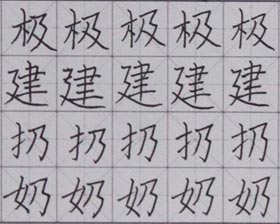 极极极极极
建建建建建
扔扔扔扔扔
奶奶奶奶奶